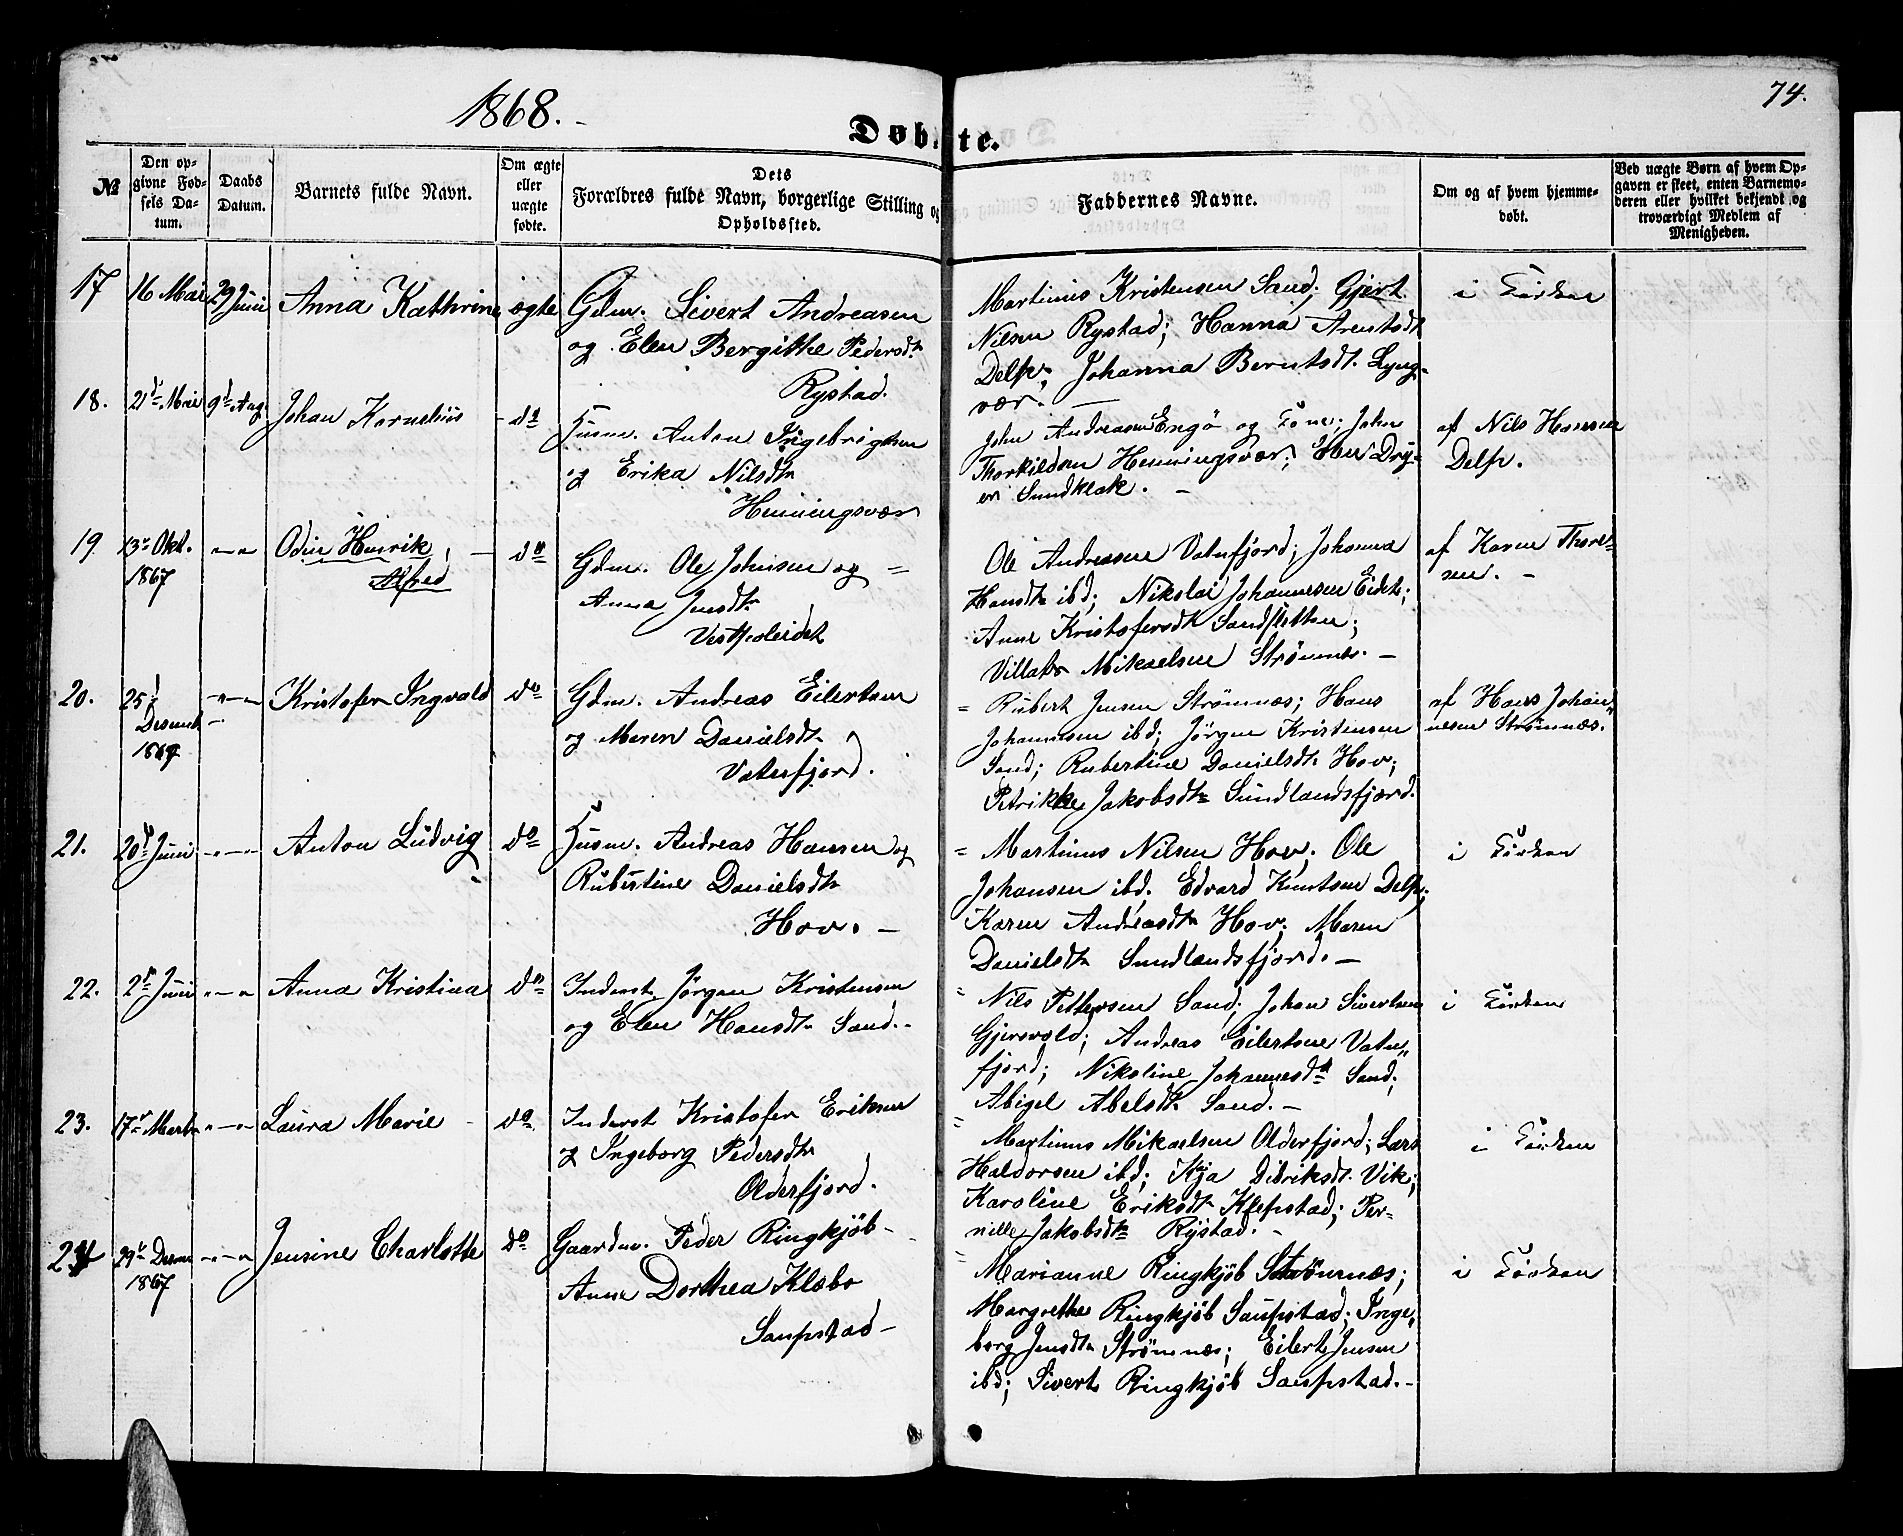 1868.
74.
Døbte.
№
Den opgivne Fødsels Datum.
Daabs Datum.
Barnets fulde Navn.
Om ægte eller uægte fødte.
Dets Forældres fulde Navn, borgerlige Stilling og Opholdssted.
Faddernes Navne.
Om og af hvem hjemmedøbt.
Ved uægte Børn af hvem Opgaven er skeet, enten Barnemoderen eller hvilket bekjendt og troværdigt Medlem af Menigheden.
17 16 Mai 29 Juni Anna Kathrine ægte
Gdm. Sivert Andreasen
og Elen Bergitte Pedersdtr
Rystad.
Martinus Kristensen Sand; Gjert
Nilsen Rystad; Hanna Arentsdt
Delp; Johanna Berntsdt. Lyng-
vær. —
i Kirken
18. 21d Mai 9d Aug. Johan Kornelius do
Husm. Anton Ingebrigtsen
og Erika Nilsdtr
Henningsvær
John Andreasen Engø og Kone; John
Thorkildsen Henningsvær; Herr Dry-
er Sundklak. —
af Nils Hansen
Delp.
19. 13de Okt. 1867 — " — Odin Henrik Alfred do
Gdm. Ole Johnsen og
Anna Jensdtr
Vestpoleidet
Ole Andreassen Vatnfjord; Johanna
Hansdtr ibd; Nikolai Johannesen Eidet;
Anne Kristofersdtr Sandsletten;
Mikaelsen Strømnes. —
af Karen Thore-
sen. —
20. 25d Desemb. 1867 — " — Kristofer Ingvald do
Gdm. Andreas Eilertsen
og Maren Danielsdtr
Vatnfjord.
Rubert Jensen Strømnæs; Hans
Johannesen ibd; Jørgen Kristensen
Sand; Rubertine Danielsdtr Hov;
Petrikke Jakobsdtr Sundlandsfjord.
af Hans Johan-
nesen Strømnæs.
21. 20d Juni — " — Anton Ludvig do
Husm. Andreas Hansen og
Rubertine Danielsdtr
Hov. —
Martinus Nilsen Hov; Ole
Johansen ibd; Edvard Knutsen Delp;
Karen Andreasdtr Hov; Maren
Danielsdtr Sundlandsfjord. —
i Kirken
22. 2d Juni — " — Anna Kristina do
Inderst Jørgen Kristensen
og Elen Hansdtr Sand. -
Nils Pettersen Sand; Johan Sivertsen
Gjersvold; Andreas Eilertsen Vatn-
fjord; Nikoline Johannesdtr Sand;
Abigel Abelsdtr Sand. —
i Kirken
23. 17de Marts — " — Laura Marie do
Inderst Kristofer Eriksen
og Ingeborg Pedersdtr
Olderfjord.
Martinus Mikaelsen Olderfjord; Lars
Haldorsen ibd; Kaja Didriksdt. Vik;
Karoline Eriksdtr Klepstad; Per-
nille Jakobsdtr Rystad. -
i Kirken
24 29de Desem 1867 — " — Jensine Charlotte do
Gaardm. Peder Ringkjøb -
Anne Dorthea Klæbo
Saupstad -
Marianne Ringkjøb Strømnæs;
Margrethe Ringkjøb Saupstad; Inge-
borg Jensdtr Strømnæs; Eilert Jensen
ibd; Sivert Ringkjøb Saupstad. -
i Kirken